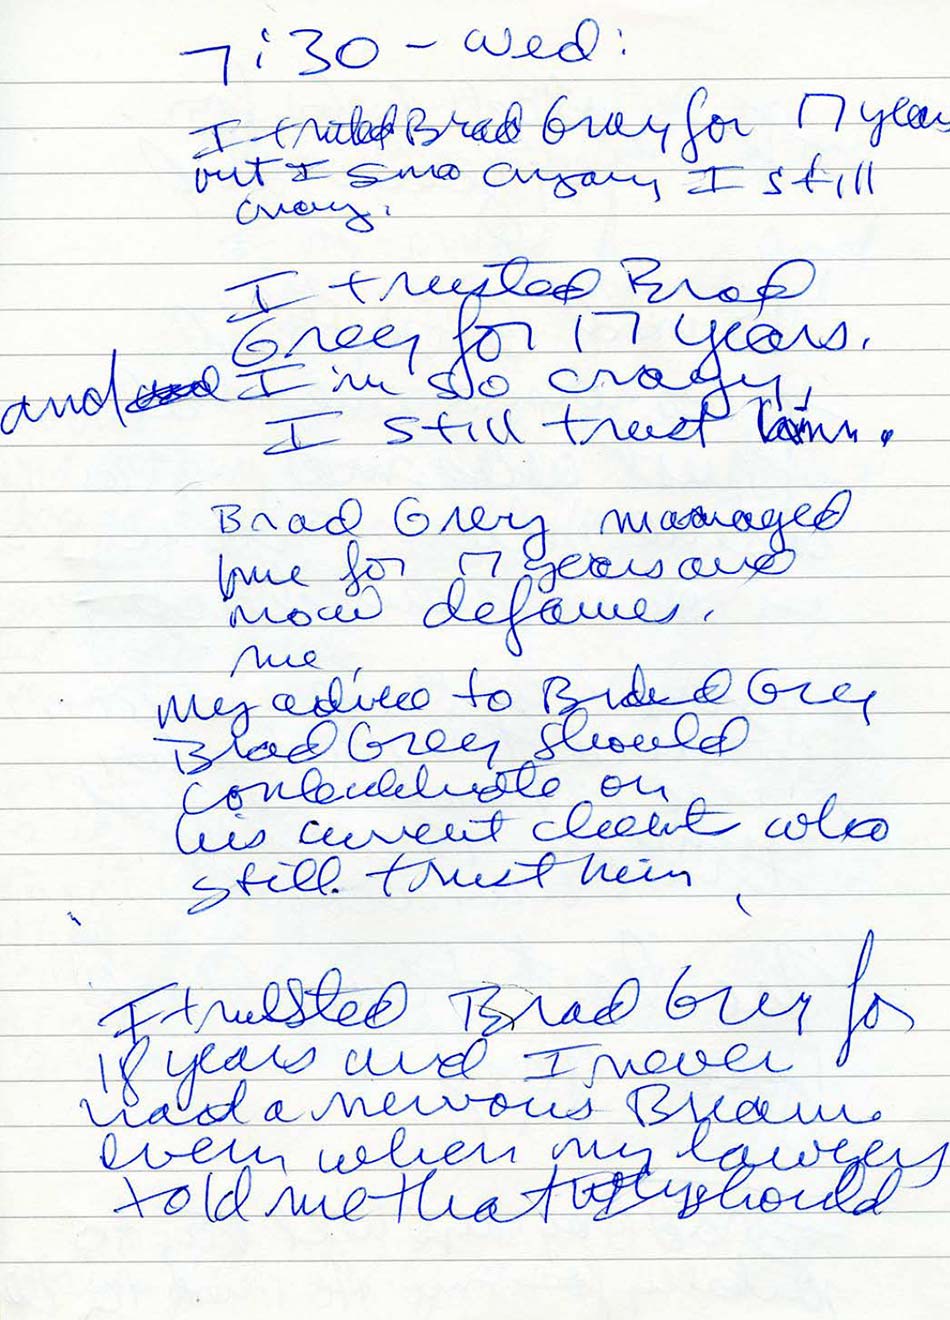 7:30 - Wed:
I Brad Gray for 17 years
but I so crazy, I still
crazy.
I trusted Brad
Grey for 17 years.
and I'm so crazy,
I still trust him.
Brad Grey managed
me for 17 years and
now defames.
me.
my advice to Brad Grey
Brad Grey should
on
his current clients who
still trust him
I trusted Brad Grey for
18 years and I never
had a nervous
even when my lawyers
told me that they should